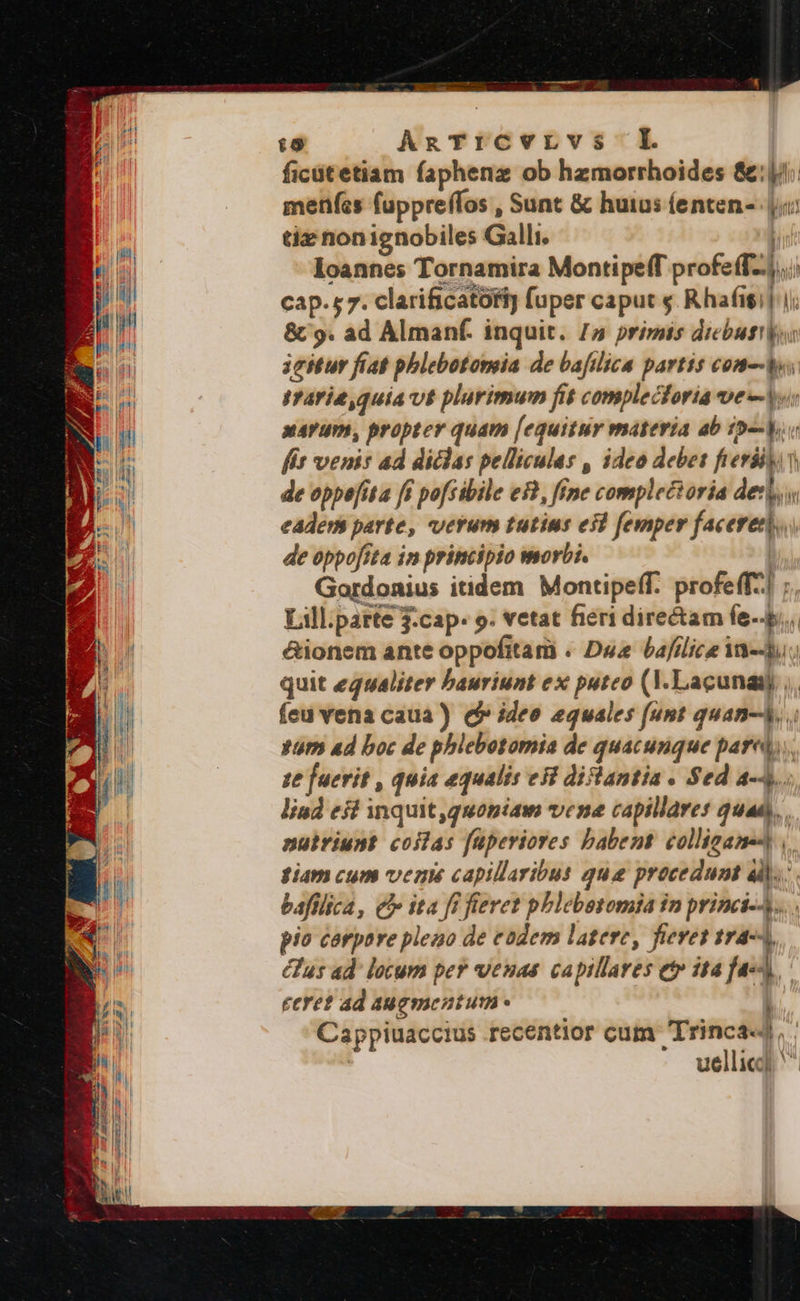 10 ARTICVLVS I.
ſicut etiam ſaphenæ ob hæmorrhoides &
menſes ſuppreſſos, Sunt & huius ſenten-
tiæ non ignobiles Galli.
Ioannes Tornamira Montipeſſ. profeſſ.
cap. 57. clarificatorij ſuper caput 5. Rhaſis
& 9. ad Almanſ. inquit. In primis diebus
igitur fiat phlebotomia de baſilica partis con-
trariæ, quia vt plurimum fit complectoria ve-
narum, propter quam ſequitur materia ab ip-
ſis venis ad dictas pelliculas, ideo debet fieri
de oppoſita ſi poſsibile eſt, ſine complectoria de
eadem parte, verum tutius eſt ſemper facere
de oppoſita in principio morbi.
Gordonius itidem Montipeſſ. profeſſ.
Lill. parte 3. cap. 9. vetat fieri directam ſe-
ctionem ante oppoſitam. Duæ baſilicæ in-
quit equaliter hauriunt ex puteo (I. Lacuna
ſeu vena caua) & ideo æquales ſunt quan-
tum ad hoc de phlebotomia de quacunque par-
te fuerit, quia æqualis eſt diſtantia. Sed a-
liud eſt inquit, quoniam venæ capillares quæ
nutriunt coſtas ſuperiores habent colligan-
tiam cum venis capillaribus quæ procedunt
baſilica, & ita ſi fieret phlebotomia in princi-
pio corpore pleno de eodem latere, fieret tra-
ctus ad locum per venas capillares & ita fa-
ceret ad augmentum.
Cappiuaccius recentior cum Trinca-
uellico